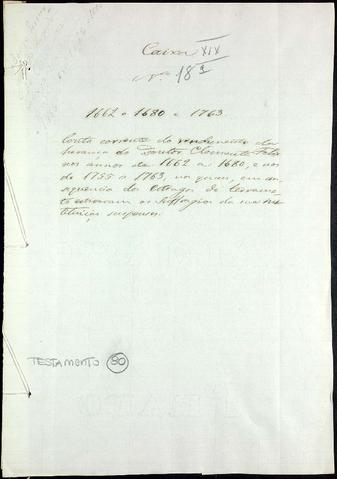 Caixa XIX
Nº 18 a
1662 a 1680 e 1763.
Conta corrente do rendimento da
herança do Doutor Clemente
nos annos de 1662 a 1680, e nos
de 1755 a 1763, nos quaes, em con
sequencia do estrago do terramo
to estiveram os suffragios da sua ins
tituição suspensos.
TESTAMENTO 80